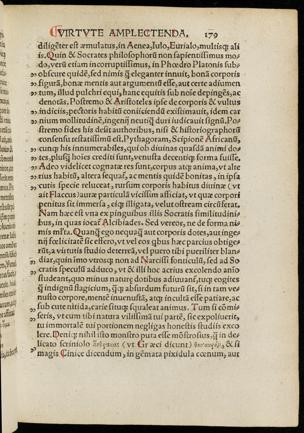 VIRTVTE AMPLECTENDA. 179
diligẽter est æmulatus, in Aenea, Iulo, Eurialo, multisqɜ ali
is. Quin & Socrates philosophorũ non sapientissimus mo-
do, verũ etiam incorruptissimus, in Phœdro Platonis sub-
obscure quidẽ, sed nimis q̃ eleganter innuit, bonã corporis
figurã, bonæ mentis aut argumentũ esse, aut certe adiumen
tum, istud pulchri equi, hanc equitis sub noïe
denotãs. Postremo & Aristoteles ipse de corporis & vultus
indicijs, pectoris habitũ coniiciendi exissimauit, idem car
nium mollitudinẽ, ingenij
stremo fides his desit authoribus, nisi & historiographorũ
consensu testatissimũ est, Pythagoram, Scipionẽ Africanũ,
cunqɜ his innumerabiles, quiob diuinas quasdã animi do-
tes, plusqɜ hoïes crediti sunt, venusta decentiqɜ forma fuisse.
Adeo videlicet cognatæ res sunt, corpus atqɜ anima, vt alte
rius habitũ, altera sequaf, ac mentis quidẽ bonitas, in ipsa
cutis specie reluceat, rursum corporis habitus diuinæ (vt
ait Flaccus) auræ particulã vicissim afficiat, vt quæ corpori
penitus sit immersa, eiqɜ illigata, velut ostream circũferat.
Nam hæc est vna ex pinguibus illis Socratis similitudini
bus, in quas iocat Alcibiades. Sed vereor, ne de forma ni-
mis
nij felicitate sic efferro, vt vel eos qbus hæc parcius obtige-
rit, a virtutis studio deterreã, vel puero tibi pueriliter blan-
diar, quin imo vtrosqɜ non ad Narcissi fonticulũ, sed ad So
cratis speculũ adduco, vt & illi hoc acrius excolendo anio
studeant, quo minus naturę dotibus adiuuant, tuqɜ cogites
q̃ indignũ flagicium, q̃qɜ absurdum futurũ sit, si in tam ve-
nusto corpore, mentẽ inuenustã, atqɜ incultã esse patiare, ac
sub cute nitida, carie situqɜ squaleat animus. Tum si cõmi-
seris, vt cum tibi natura vilissimã tui partẽ, sic expoliuerit,
tu immortalẽ tui portionem negligas honestis studiis exco
lere. Deniqɜ nihil isto monstro pura esse mõstrosius, q̃ in de
licato scriniolo (vt Græci dicunt) & si
magis Cinice dicendum, in gẽmata pixidula cœnum, aut